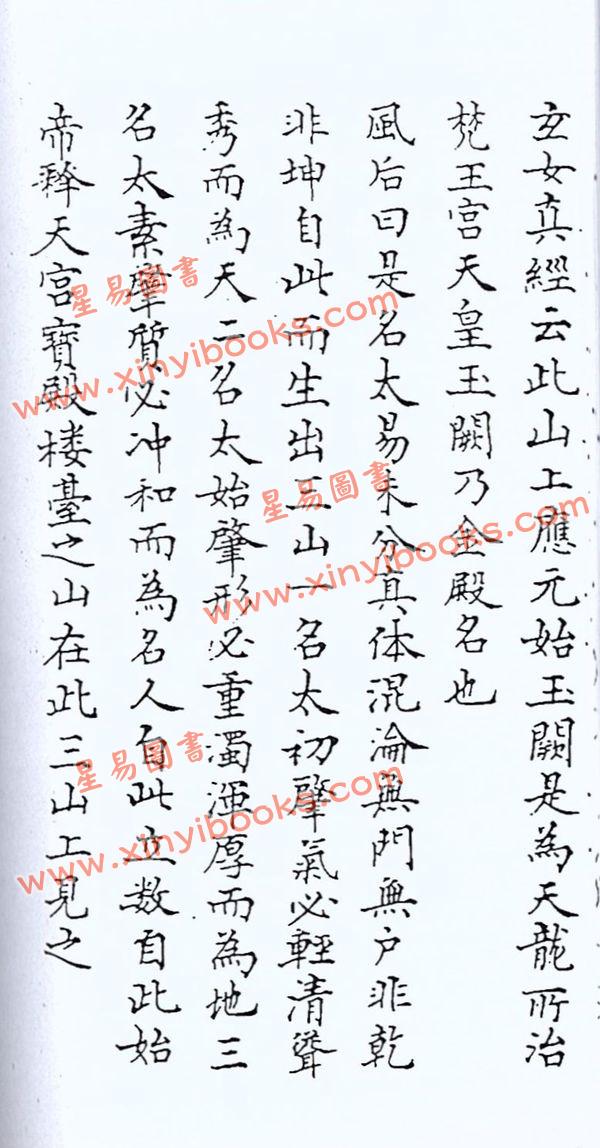 玄女真經云此山上應元始玉闕是為天龍所治
梵王宮天皇玉闕乃金殿名也
風后曰是名太易未分真体混淪無門無户非乾
非坤自此而生出三山一名太初肇氣必輕清聳
秀而為天二名太始肇形必重濁渾厚而為地三
名太素肇質必冲和而為名人自此立数自此始
帝釋天宮寶殿楼臺之山在此三山上見之
星易圖書
www.xinyibooks.com
星易圖書
www.xinyibooks.com
星易圖書
www.xinyibooks.com